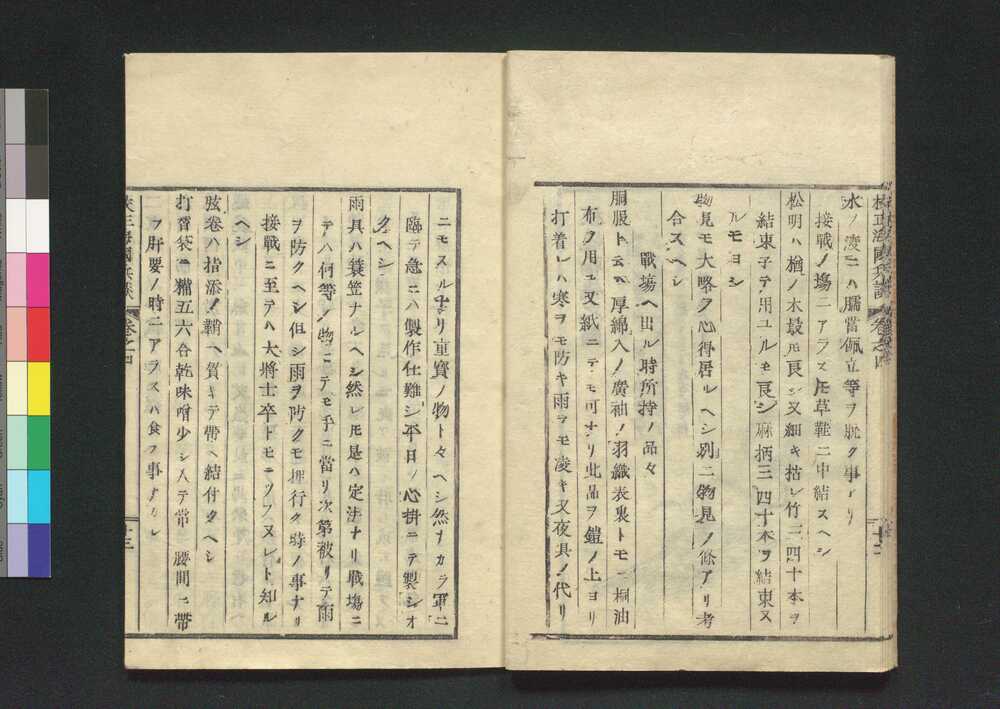 校正海國兵談 卷之四 十二
水ノ凌ニハ臑當佩立等ヲ脱ク事アリ
接戰ノ塲ニアラス𪜈草鞋ニ中結スヘシ
松明ハ楢ノ木最𪜈良シ又細キ枯レ竹三四十本ヲ
結束子テ用ユルモ良シ麻柄三四十本ヲ結束又
ルモヨシ
物見モ大略ク心得居ルヘシ別ニ物見ノ條アリ考
合スヘシ
戰塲ヘ出ル時所持ノ品々
胴服ト云テ厚綿入ノ廣袖ノ羽織表裏トモニ桐油
布ヲ用ユ又紙ニテモ可ナリ此品ヲ鎧ノ上ヨリ
打着レハ寒ヲモ防キ雨ヲモ凌キ又夜具ノ代リ
ニモスルナリ重寳ノ物ト々ヘシ然ナカラ軍ニ
臨テ急ニハ製作仕難シ平日ノ心掛ニテ製シオ
クヘシ
雨具ハ簑笠ナルヘシ然レ𪜈是ハ定法ナリ戰塲ニ
テハ何等ノ物ニテモ手ニ當リ次第被リテ雨
ヲ防クヘシ但シ雨ヲ防クモ押行ク時ノ事ナリ
接戰ニ至テハ大將士卒トモニヅフヌレト知ル
ヘシ
弦卷ハ指添ノ鞘ヘ貫キテ帶ヘ結付クヘシ
打替袋ニ糒五六合乾味噌少シ入テ常ニ腰間ニ帶
フ肝要ノ時ニアラスハ食フ事ナカレ
校正海國兵談 卷之四 十三